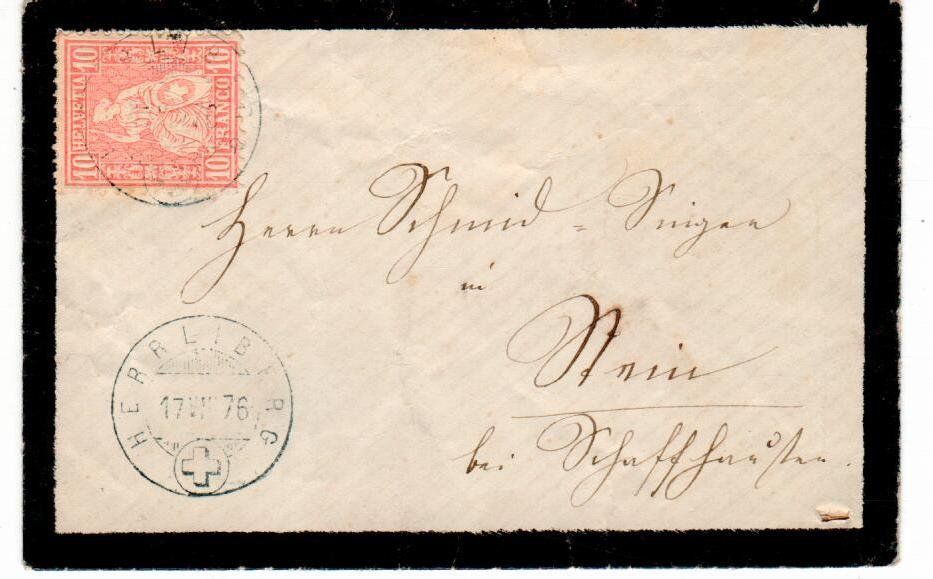 10 HELVETIA 10
10 FRANCO 10
Herrn Schmid = Singen
in
Stein
bei Schaffhausen.
HERRLIBERG
17 76